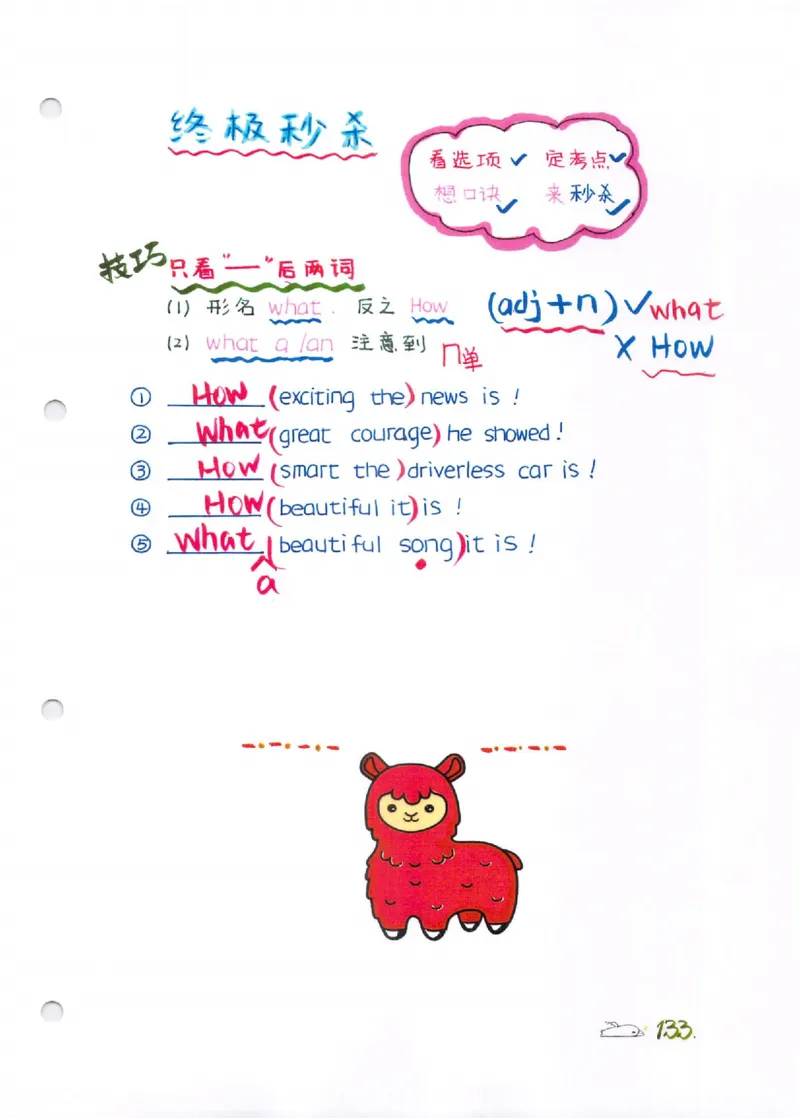 终极秒杀
看选项 ✓ 定考点 ✓
想口诀 ✓ 来秒杀 ✓
技巧 只看"—"后两词
(1) 形名 what. 反之 How
(adj+n) ✓ what
× How
(2) what a /an 注意到 几单
① How (exciting the) news is !
② What (great courage) he showed!
③ How (smart the) driverless car is !
④ How (beautiful it) is !
⑤ What (beautiful song) it is !
a
133.